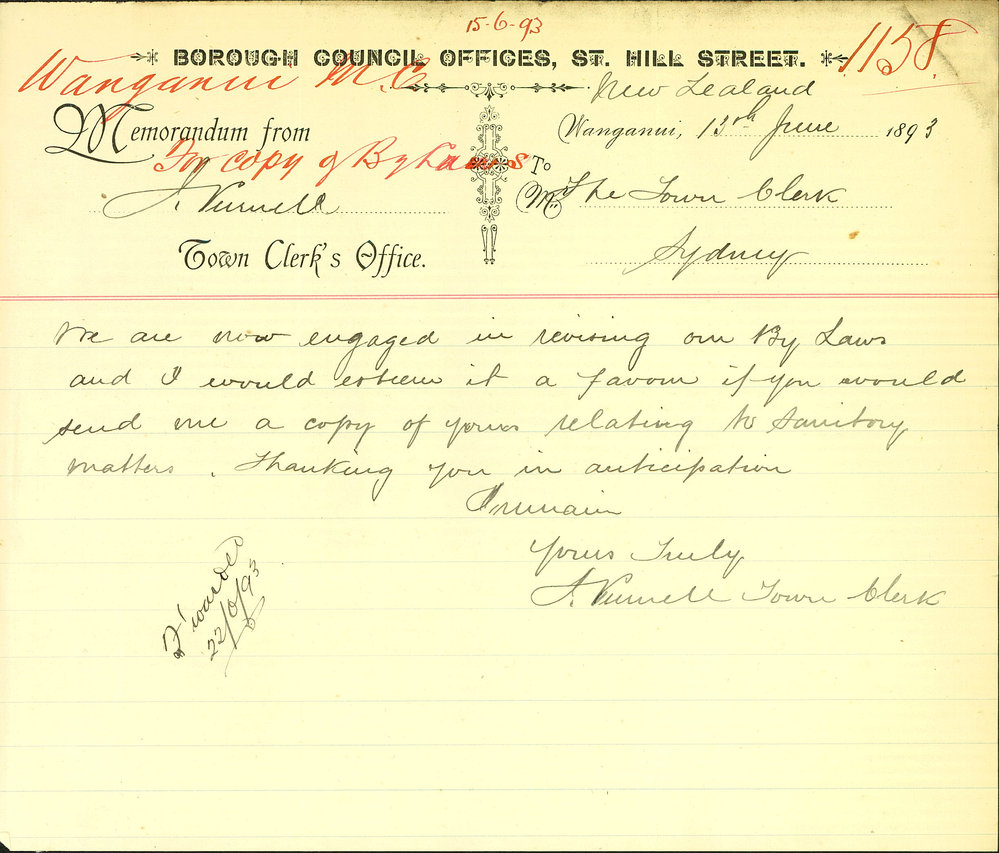 15-6-93
BOROUGH COUNCIL OFFICES, ST. HILL STREET.
1158
Wanganui M.C.
New Zealand
Memorandum from
Wanganui, 13th June 1893
For copy of By Laws
To
M The Town Clerk
Town Clerk's Office.
Sydney
We are now engaged in revising our By Laws
and I would esteem it a favour if you would
send me a copy of yours relating to Sanitory
matters. Thanking you in anticipation
I remain
Yours Truly
Town Clerk
F'warded
22/6/93